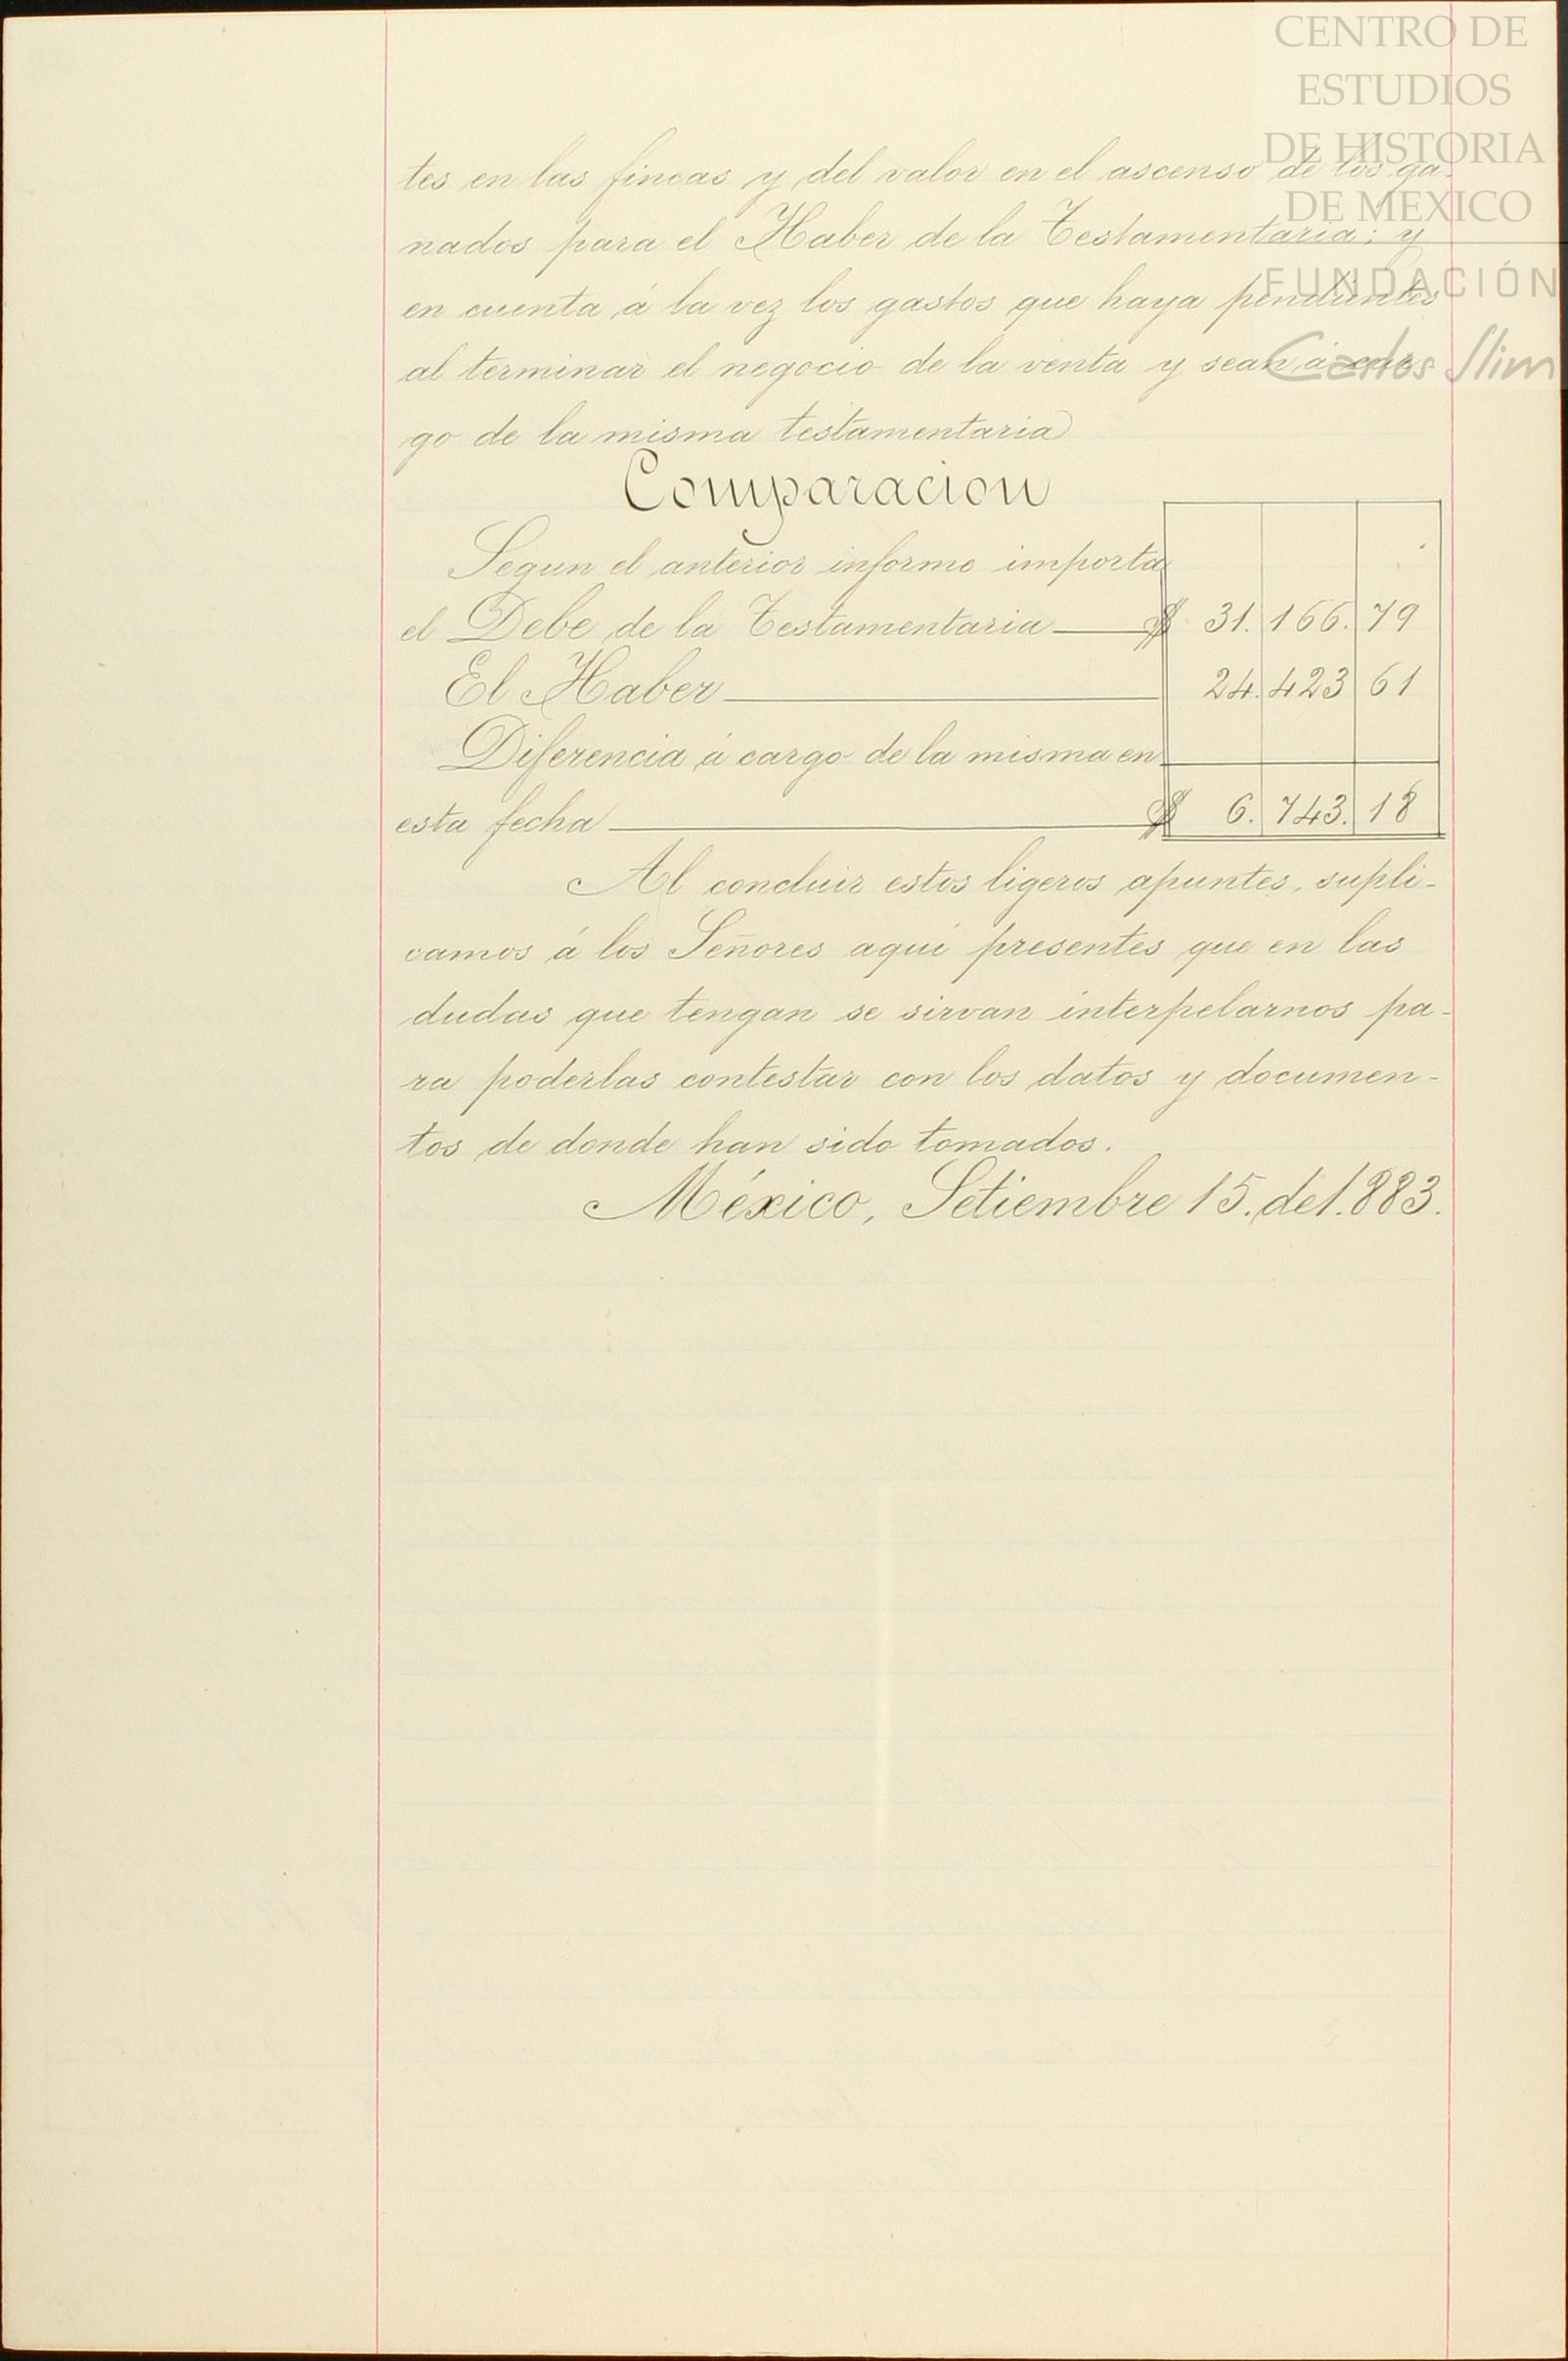 CENTRO DE
ESTUDIOS
DE HISTORIA
DE MEXICO
FUNDACIÓN
Carlos Slim
tes en las fincas y del valor en el ascenso de los ga-
nados para el Haber de la Testamentaria; y
en cuenta á la vez los gastos que haya pendientes
al terminar el negocio de la venta y sean á car-
go de la misma testamentaria
Comparacion
Segun el anterior informe importa
el Debe de la Testamentaria $ 31.166.79
El Haber 24.423 61
Diferencia á cargo de la misma en
esta fecha $ 6.743.18
Al concluir estos ligeros apuntes, supli-
camos á los Señores aquí presentes que en las
dudas que tengan se sirvan interpelarnos pa-
ra poderlas contestar con los datos y documen-
tos de donde han sido tomados.
México, Setiembre 15. de 1.883.